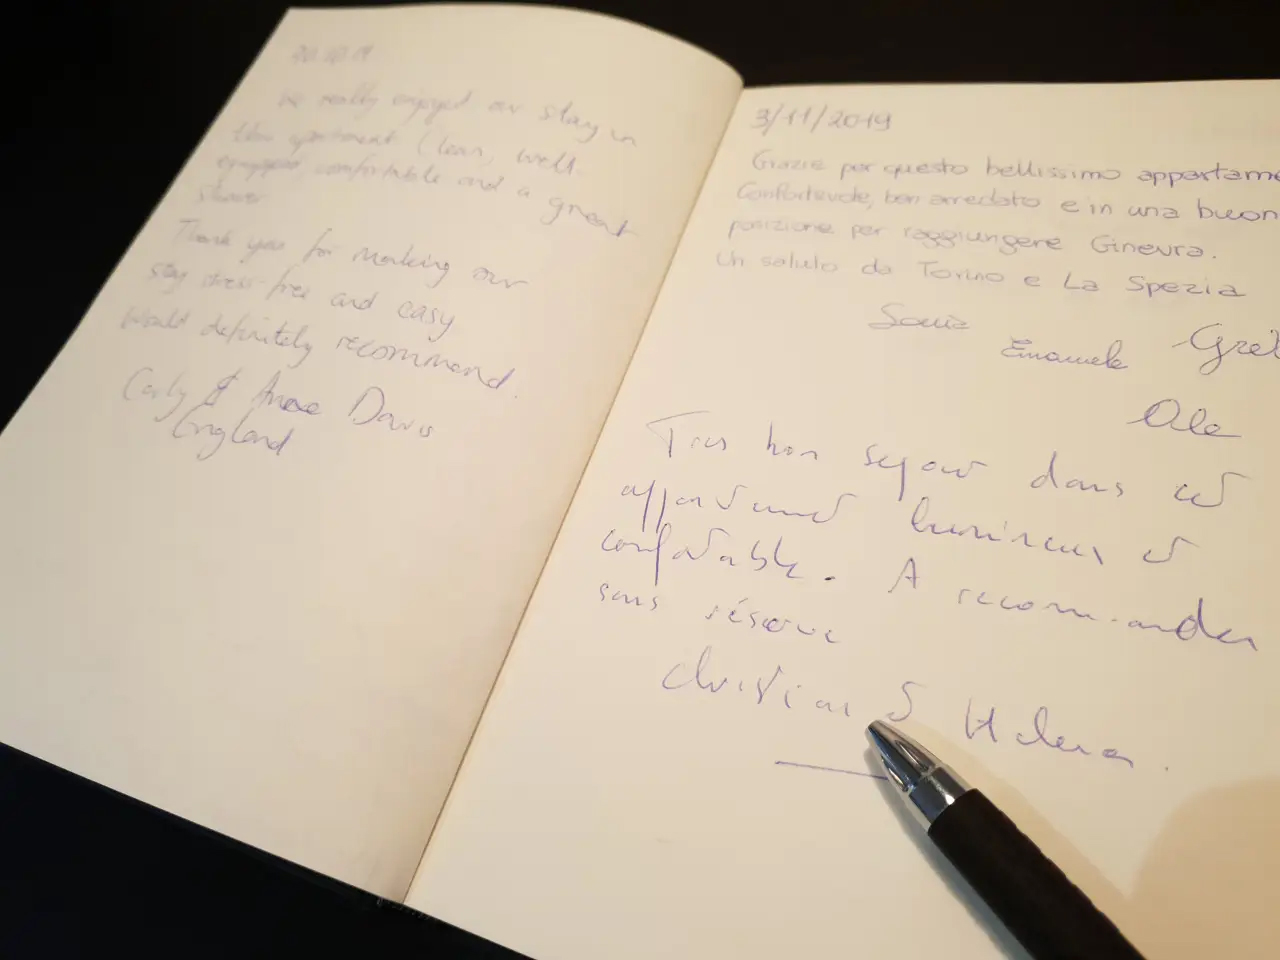 We really enjoyed our stay in
this apartment (clean, well-
equipped, comfortable and a great
shower
Thank you for making our
stay stress-free and easy
Would definitely recommend.
Carly & Anne Davis
England
3/11/2019
Grazie per questo bellissimo appartame
Confortevole, ben arredato e in una buon
posizione per raggiungere Ginevra.
Un saluto da Torino e La Spezia
Sonia
Emanuele Gre
Ale
Tres bon sejour dans cet
appartement lumineux et
confortable. A recommander
sans réserve
Christian et Helena.